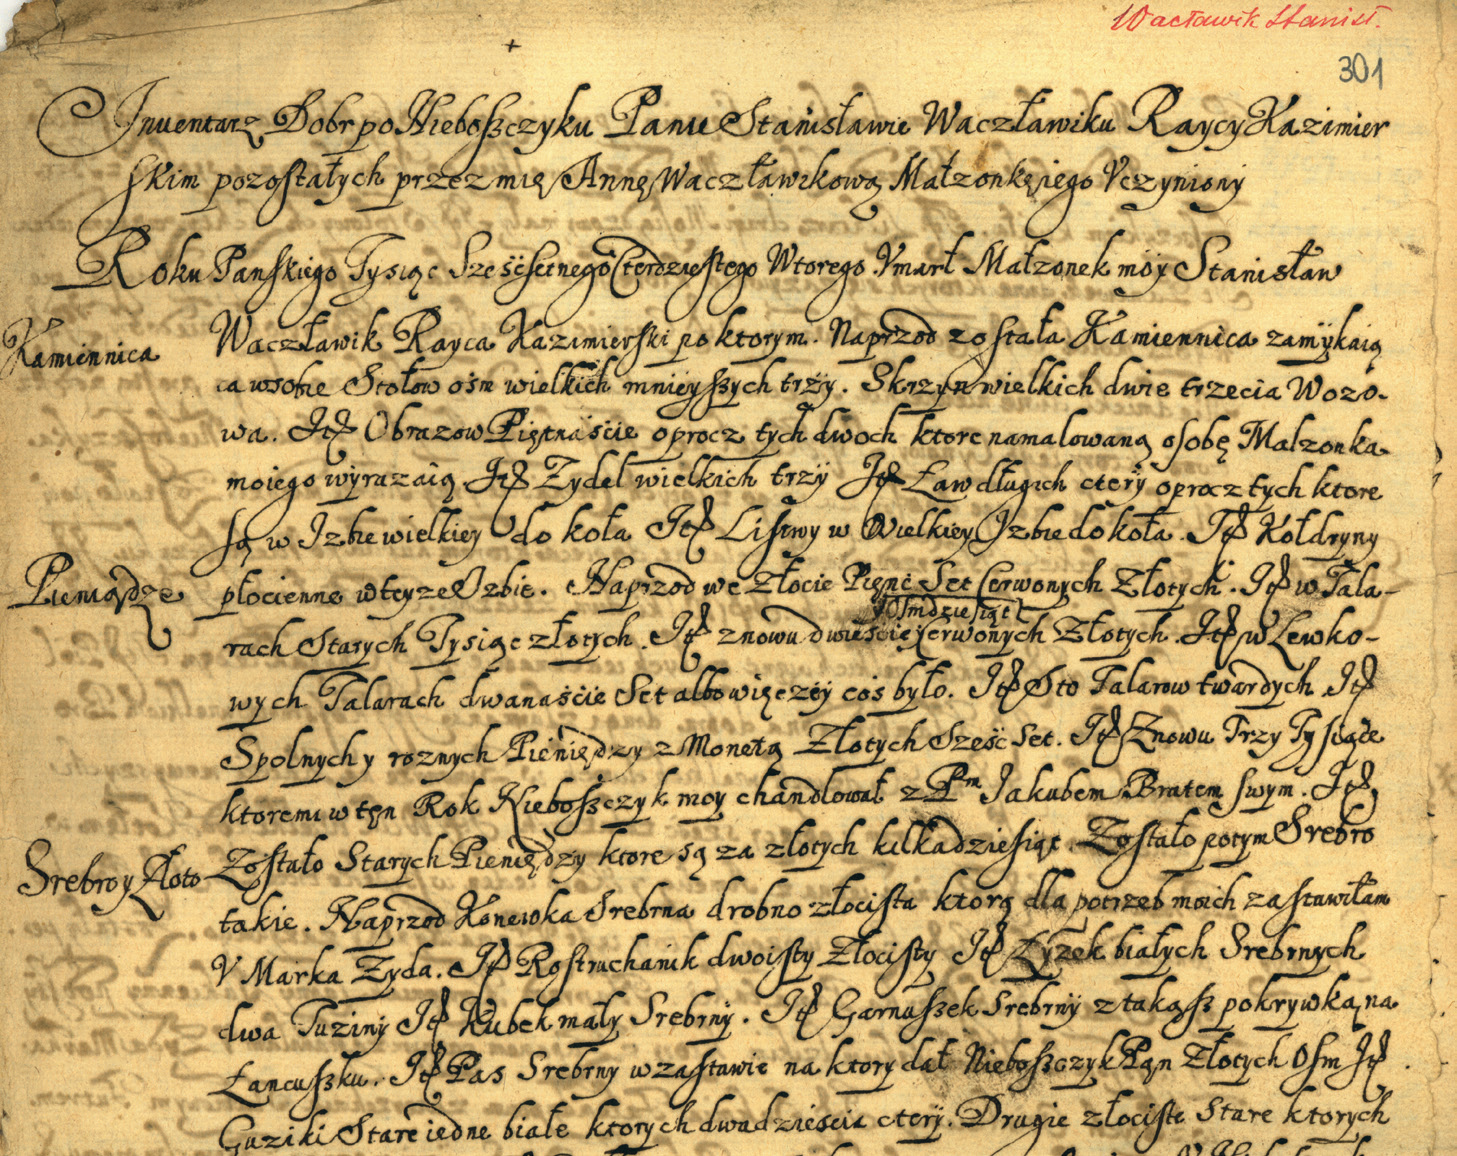 Wacławik Stanisł.
301
Inuentarz Dobr po Nieboszczyku Panu Stanisławie Waczławiku Raycy Kazimier
skim pozostałych przez mię Annę Waczławikową Małzonkę iego Vczyniony
Roku Panskiego Tysiąc Sześćsetnego Czterdziestego Wtorego Vmarł Małzonek moy Stanisław
Kamiennica
Waczławik Rayca Kazimierski po ktorym. Naprzod została Kamiennica zamÿkaią
ca wsobie Stołow ośm wielkich mnieyszych trzÿ. Skrzyn wielkich dwie trzecia Wozo-
wa. Itē Obrazow Piętnaście oprocz tych dwoch ktore namalowaną osobę Małzonka
moiego wyrazaią Itē Zydel wielkich trzÿ Itē Ław długich cterÿ oprocz tych ktore
są w Izbie wielkiey do koła Itē Listwy w Wielkiey Izbie do koła. Itē Kołdryny
Pieniądze
płocienne wteyze Izbie. Naprzod we złocie Pięnć Set Cerwonych Złotych. Itē w Tala-
Ośmdziesiąt
rach Starych Tysiąc złotych. Itē znowu dwieście Cerwonych Złotych. Itē w Lewko-
wych Talarach dwanaście Set albo więczey coś było. Itē Sto Talarow twardych Itē
Spolnych y roznych Pieniędzy z Monetą Złotych Sześć Set. Itē Znowu Trzy Tysiące
ktoremi w tęn Rok Nieboszczyk moy chandlował z Pm Jakubem Bratem swym. Itē
Zostało Starych Pieniędzy ktore są za złotych kilkadziesiąt. Zostało potym Srebro
Srebro y Złoto
takie. Naprzod Konewka Srebrna drobno złocista ktorą dla potrzeb moich zastawiłam
V Marka Zyda. Itē Rostruchanik dwoisty Złocisty Itē Łyzek białych Srebrnych
dwa Tuziny Itē Kubek mały Srebrnÿ. Itē Garnuszek Srebrnÿ z takąsz pokrywką na
Łancuszku. Itē Pas Srebrny w zastawie na ktory dał Nieboszczyk Pąn Złotych Osm Itē
Guziki Stare iedne białe ktorych dwadzieścia cterÿ. Drugie złociste Stare ktorych